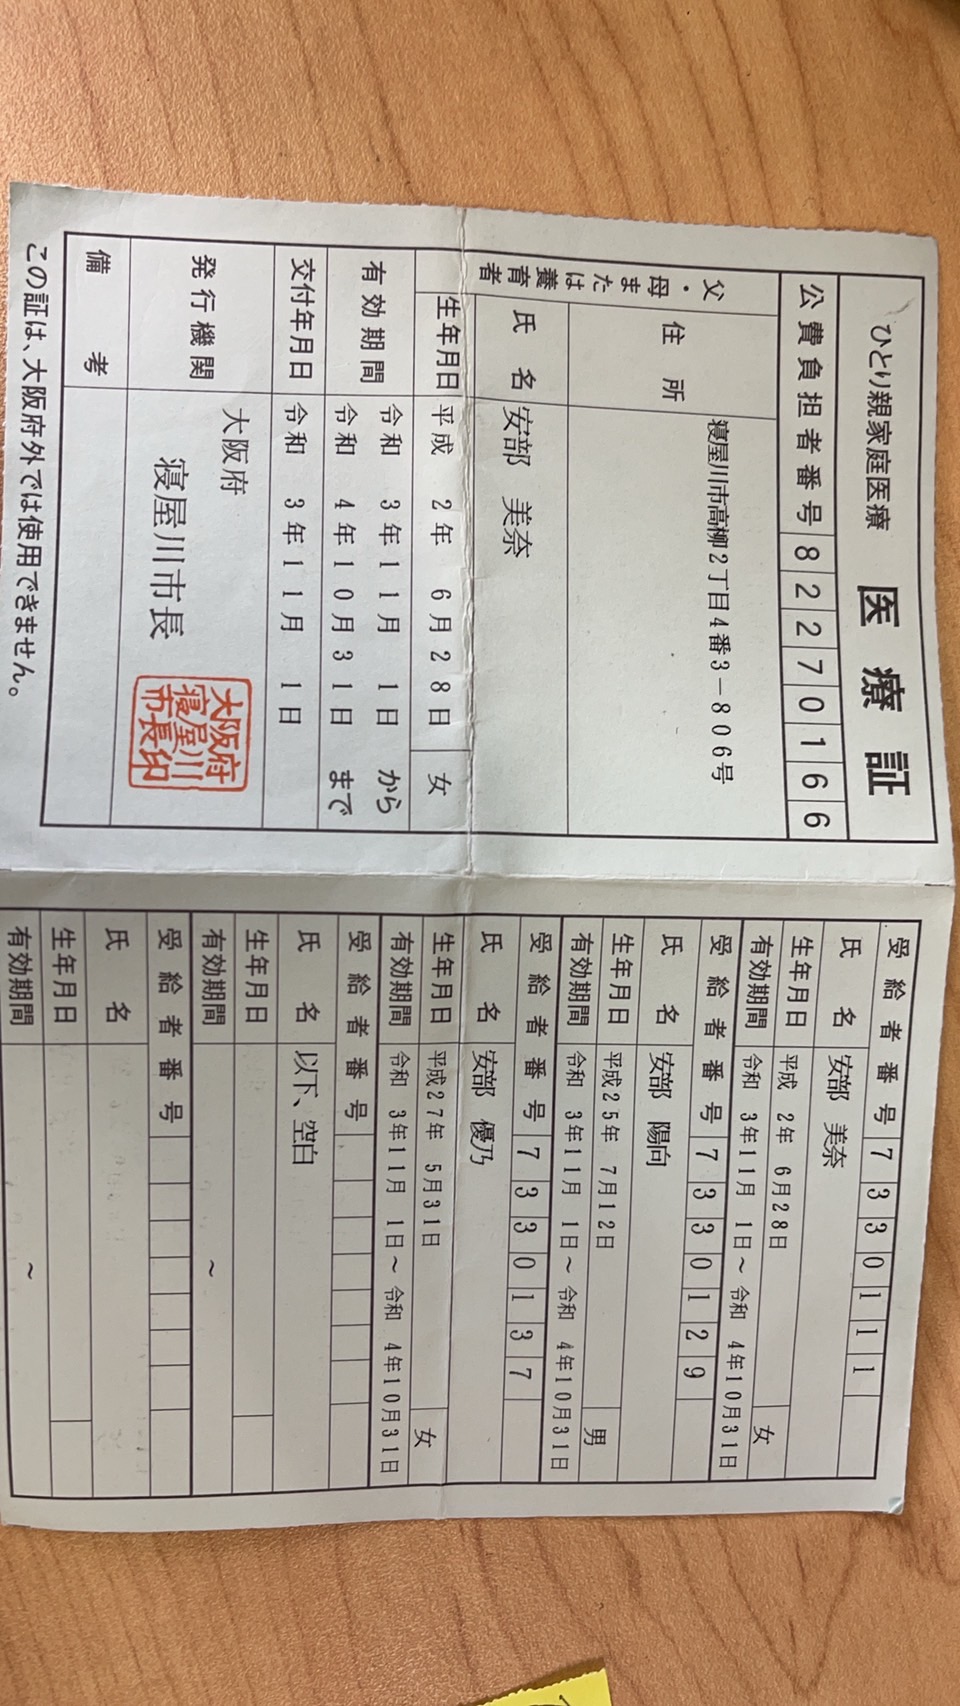 ひとり親家庭医療 医療証
公費負担者番号 82270166
父・母または養育者
住所 寝屋川市高柳2丁目4番3-806号
氏名 安部 美奈
生年月日 平成 2年 6月28日 女
有効期間 令和 3年11月 1日 から
令和 4年10月31日 まで
交付年月日 令和 3年11月 1日
発行機関 大阪府
寝屋川市長
大阪府寝屋川市長印
備考
この証は、大阪府外では使用できません。
受給者番号 7330111
氏名 安部 美奈
生年月日 平成 2年 6月28日 女
有効期間 令和 3年11月 1日~令和 4年10月31日
受給者番号 7330129
氏名 安部 陽向
生年月日 平成25年 7月12日 男
有効期間 令和 3年11月 1日~令和 4年10月31日
受給者番号 7330137
氏名 安部 優乃
生年月日 平成27年 5月31日 女
有効期間 令和 3年11月 1日~令和 4年10月31日
受給者番号
氏名 以下、空白
生年月日
有効期間 ~
受給者番号
氏名
生年月日
有効期間 ~